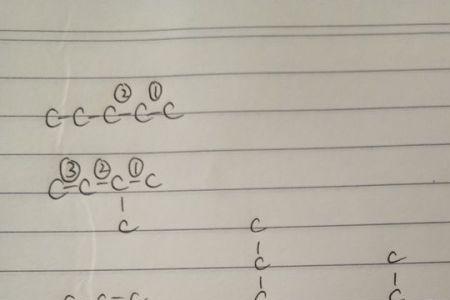 ② ①
C-C-C-C-C
③ ② ①
C-C-C-C
|
C
C
|
C
|
C
|